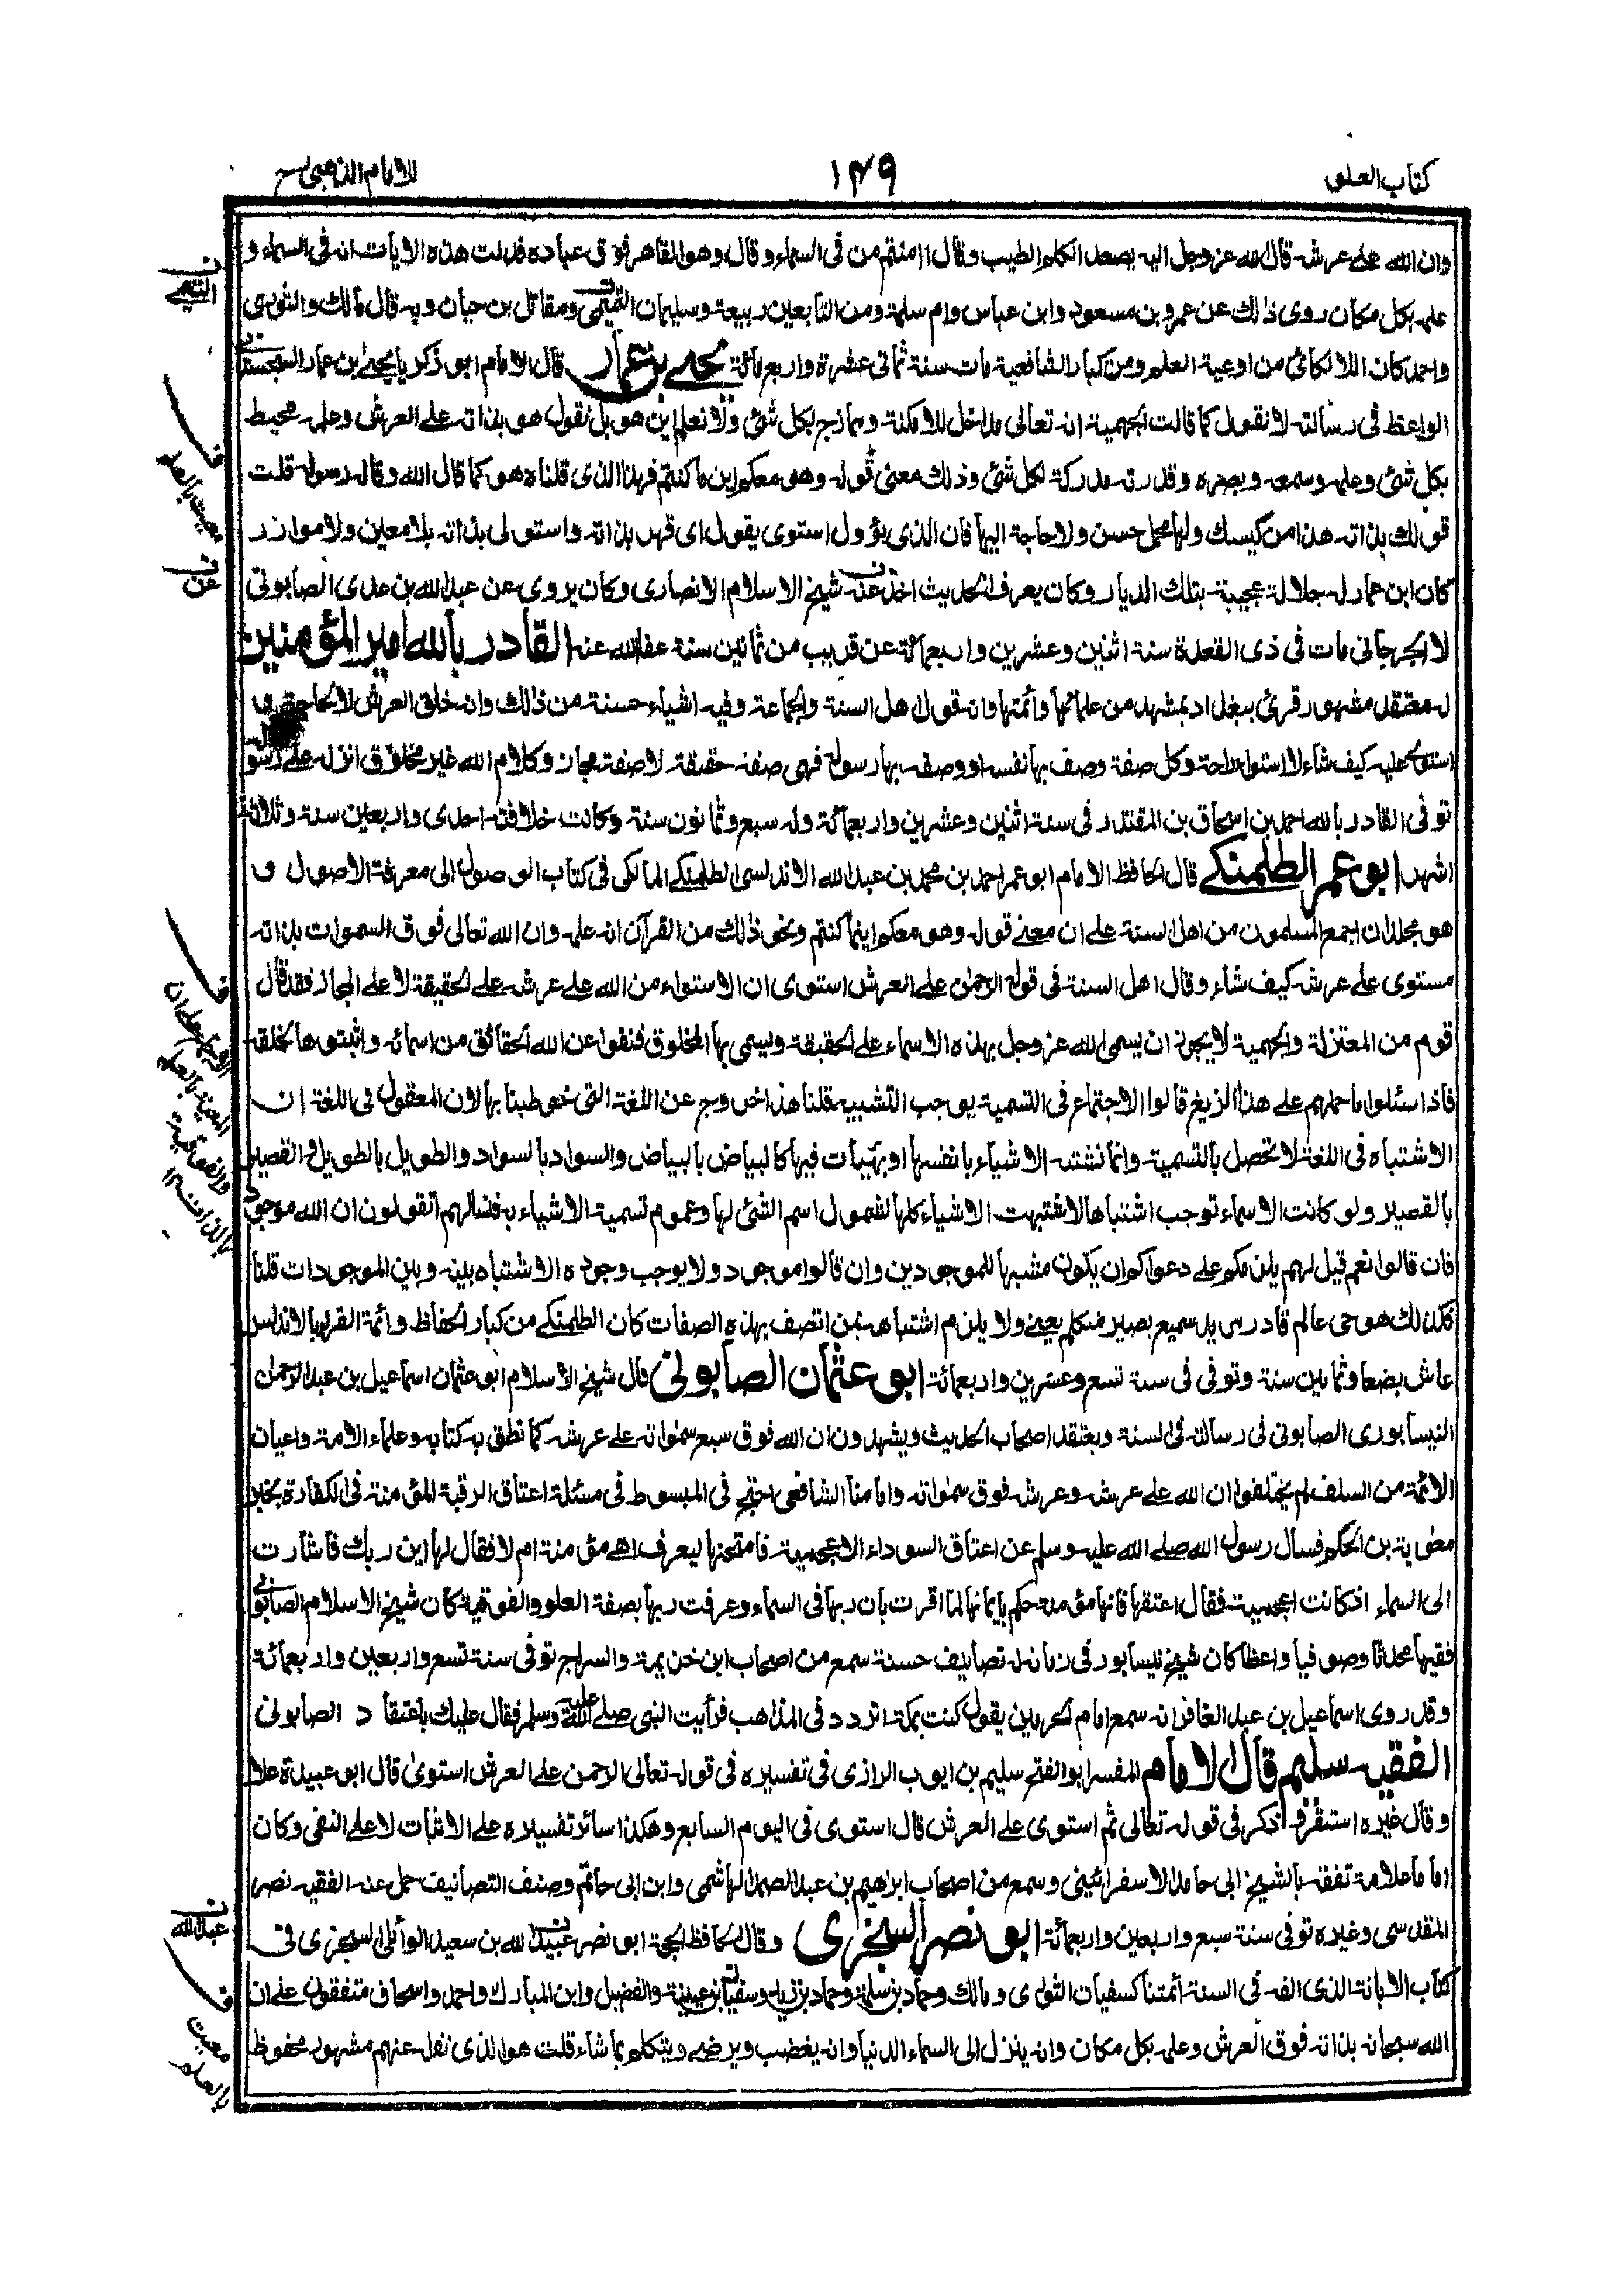 كتاب العلو
١٤٩
للامام الذهبي
وان الله على عرشه قال الله عز وجل اليه يصعد الكلم الطيب وقال أأمنتم من فى السماء وقال وهو القاهر فوق عباده فدلت هذه الايات انه فى السماء و
علمه بكل مكان روى ذلك عن عمرو بن مسعود وابن عباس وام سلمة ومن التابعين ربيعة وسليمان التيمى ومقاتل بن حيان وبه قال مالك والثورى
واحمد كان اللالكائى من اوعية العلم ومن كبار الشافعية مات سنة ثمانى عشرة واربع مائة يحيى بن عمار قال الامام ابو زكريا يحيى بن عمار السجستانى
الواعظ فى رسالته لا نقول كما قالت الجهمية انه تعالى مداخل للامكنة وممازج بكل شئ ولا نعلم اين هو بل نقول هو بذاته على العرش وعلمه محيط
بكل شئ وعلمه وسمعه وبصره وقدرته مدركة لكل شئ وذلك معنى قوله وهو معكم اين ما كنتم فهذا الذى قلناه هو كما قال الله وقال رسوله قلت
قولك بذاته هذا من كيسك ولها محمل حسن ولا حاجة اليها فان الذى يؤول استوى يقول اى قهر بذاته واستولى بذاته بلا معين ولا موازر
كان ابن عمار له جلالة عجيبة بتلك الديار وكان يعرف الحديث اخذ عنه شيخ الاسلام الانصارى وكان يروى عن عبد الله بن عدى الصابونى
لا الجرجانى مات فى ذى القعدة سنة اثنين وعشرين واربعمائة عن قريب من ثمانين سنة عفا الله عنه القادر بالله امير المؤمنين
له معتقد مشهور قرئ ببغداد بمشهد من علمائها وأئمتها وانه قول اهل السنة والجماعة وفيه اشياء حسنة من ذلك وانه خلق العرش لا لحاجة و
استوى عليه كيف شاء لا استواء راحة وكل صفة وصف بها نفسه او وصفه بها رسوله فهى صفة حقيقة لا صفة مجاز وكلام الله غير مخلوق انزله على رسوله
توفى القادر بالله احمد بن اسحاق بن المقتدر فى سنة اثنين وعشرين واربعمائة وله سبع وثمانون سنة وكانت خلافته احدى واربعين سنة وثلاثة
اشهر ابو عمر الطلمنكى قال الحافظ الامام ابو عمر احمد بن محمد بن عبد الله الاندلسى الطلمنكى المالكى فى كتاب الوصول الى معرفة الاصول و
هو مجلدان اجمع المسلمون من اهل السنة على ان معنى قوله وهو معكم اينما كنتم ونحو ذلك من القرآن انه علمه وان الله تعالى فوق السموات بذاته
مستوى على عرشه كيف شاء وقال اهل السنة فى قوله الرحمن على العرش استوى ان الاستواء من الله على عرشه على الحقيقة لا على المجاز فقد قال
قوم من المعتزلة والجهمية لا يجوز ان يسمى الله عز وجل بهذه الاسماء على الحقيقة ويسمى بها المخلوق فنفوا عن الله الحقائق من اسمائه واثبتوها لخلقه
فاذا سئلوا ما حملهم على هذا الزيغ قالوا الاجتماع فى التسمية يوجب التشبيه قلنا هذا خروج عن اللغة التى خوطبنا بها لان المعقول فى اللغة ان
الاشتباه فى اللغة لا تحصل بالتسمية وانما تشتبه الاشياء بانفسها او بهيأت فيها كالبياض بالبياض والسواد بالسواد والطويل بالطويل والقصير
بالقصير ولو كانت الاسماء توجب اشتباها لاشتبهت الاشياء كلها لشمول اسم الشئ لها وعموم تسمية الاشياء به فنسألهم اتقولون ان الله موجود
فان قالوا نعم قيل لهم يلزمكم على دعواكم ان يكون مشبها للموجودين وان قالوا موجود ولا يوجب وجوده الاشتباه بينه وبين الموجودات قلنا
فكذلك هو حى عالم قادر مريد سميع بصير متكلم يعنى ولا يلزم اشتباهه بمن اتصف بهذه الصفات كان الطلمنكى من كبار الحفاظ وأئمة القراء بالاندلس
عاش بضعا وثمانين سنة وتوفى فى سنة تسع وعشرين واربعمائة ابو عثمان الصابونى قال شيخ الاسلام ابو عثمان اسماعيل بن عبد الرحمن
النيسابورى الصابونى فى رسالته فى السنة ويعتقد اصحاب الحديث ويشهدون ان الله فوق سبع سمواته على عرشه كما نطق به كتابه وعلماء الامة واعيان
الائمة من السلف لم يختلفوا ان الله على عرشه وعرشه فوق سمواته وامامنا الشافعى احتج فى المبسوط فى مسئلة اعتاق الرقبة المؤمنة فى الكفارة بخبر
معوية بن الحكم فسال رسول الله صلى الله عليه وسلم عن اعتاق السوداء الاعجمية فامتحنها ليعرف اهى مؤمنة ام لا فقال لها اين ربك فاشارت
الى السماء اذ كانت اعجمية فقال اعتقها فانها مؤمنة حكم بايمانها لما اقرت بان ربها فى السماء وعرفت ربها بصفة العلو والفوقية كان شيخ الاسلام الصابونى
فقيها محدثا وصوفيا واعظا كان شيخ نيسابور فى زمانه له تصانيف حسنة سمع من اصحاب ابن خزيمة والسراج توفى سنة تسع واربعين واربعمائة
وقد روى اسماعيل بن عبد الغافر انه سمع امام الحرمين يقول كنت بمكة اتردد فى المذاهب فرأيت النبى صلى الله عليه وسلم فقال عليك باعتقاد الصابونى
الفقيه سليم قال الامام المفسر ابو الفتح سليم بن ايوب الرازى فى تفسيره فى قوله تعالى الرحمن على العرش استوى قال ابو عبيدة علا
وقال غيره استقر وذكر فى قوله تعالى ثم استوى على العرش قال استوى فى اليوم السابع وهكذا سائر تفسيره على الاثبات لا على النفى وكان
اماما علامة تفقه بالشيخ ابى حامد الاسفرائينى وسمع من اصحاب ابراهيم بن عبد الصمد الهاشمى وابن ابى حاتم وصنف التصانيف حمل عنه الفقيه نصر
المقدسى وغيره توفى سنة سبع واربعين واربعمائة ابو نصر السجزى وقال الحافظ الحجة ابو نصر عبيد الله بن سعيد الوائلى السجزى فى
كتاب الابانة الذى الفه فى السنة أئمتنا كسفيان الثورى ومالك وحماد بن سلمة وحماد بن زيد وسفيان بن عيينة والفضيل وابن المبارك واحمد واسحاق متفقون على ان
الله سبحانه بذاته فوق العرش وعلمه بكل مكان وانه ينزل الى السماء الدنيا وانه يغضب ويرضى ويتكلم بما شاء قلت هو الذى نقله عنهم مشهور محفوظ
ن
ف
معيت بالعلم
ن
عن
ف
ن
عبد الله
ف
معيت
بالعلم